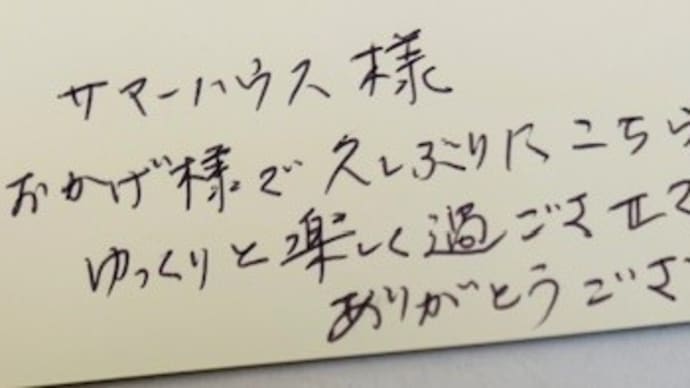 サマーハウス様
おかげ様で久しぶりにこちら
ゆっくりと楽しく過ごさせて
ありがとうござ